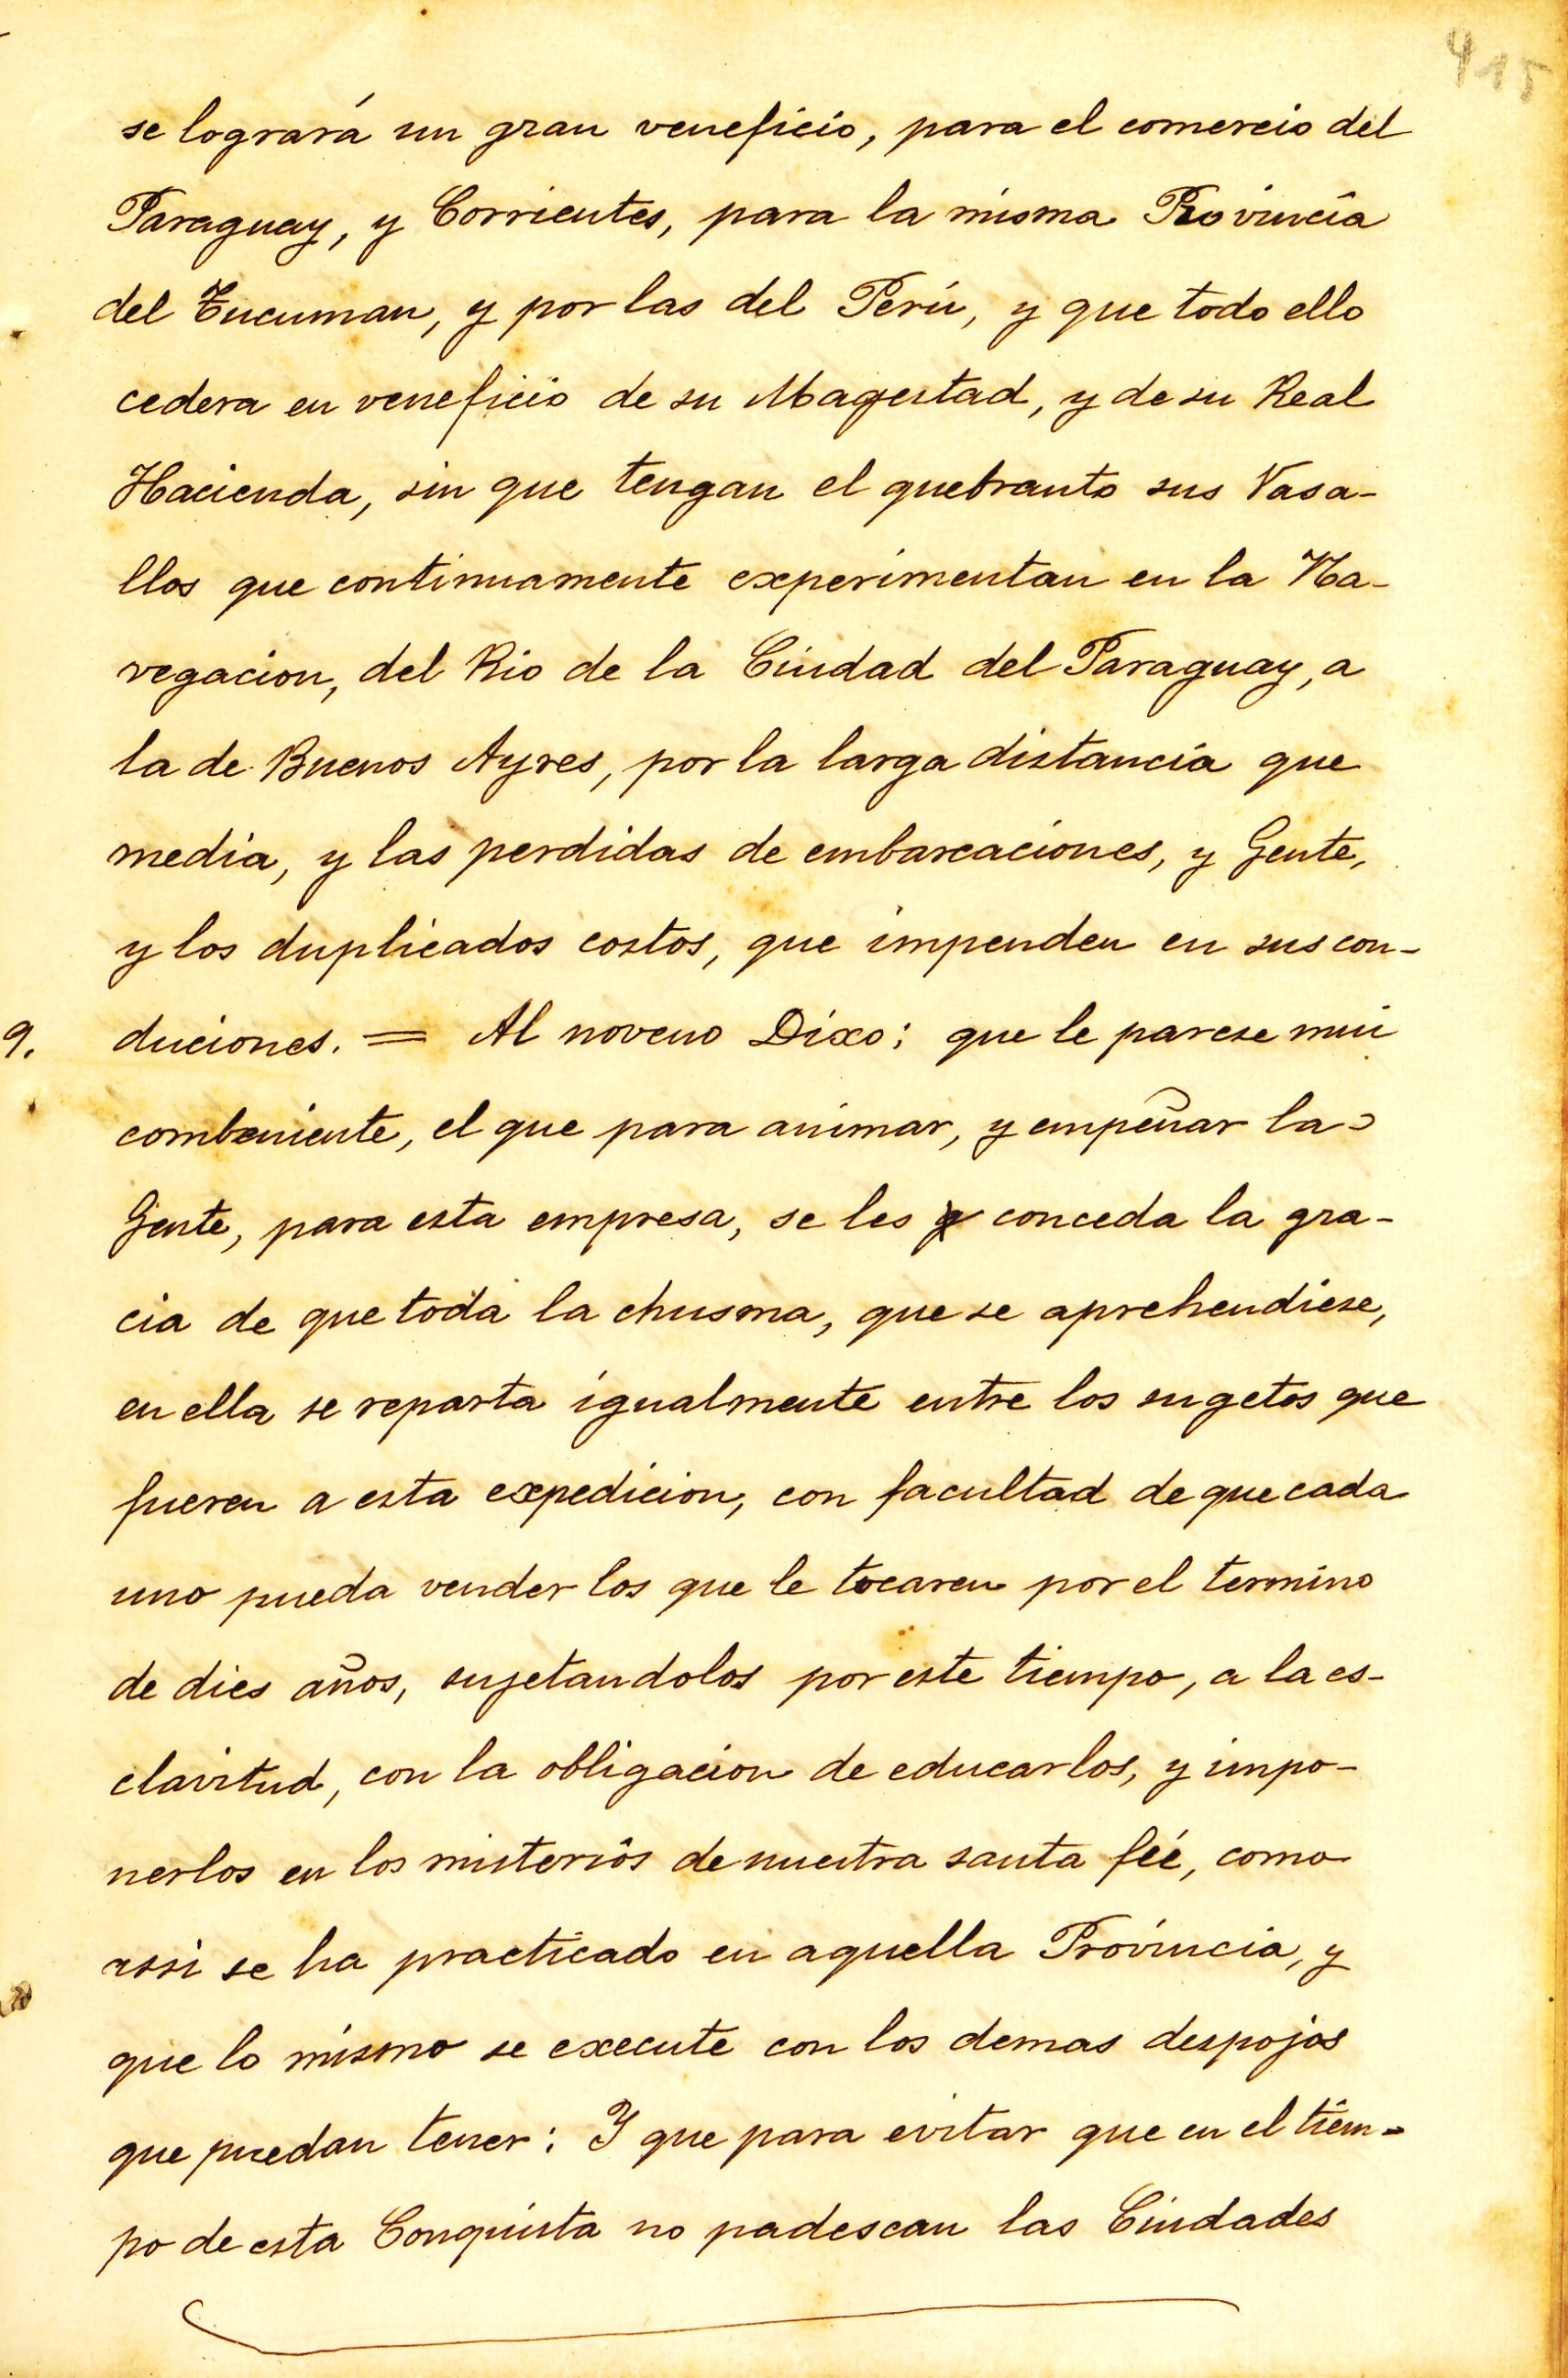 415
se logrará un gran veneficio, para el comercio del
Paraguay, y Corrientes, para la misma Provincia
del Tucuman, y por las del Perú, y que todo ello
cedera en veneficio de su Magestad, y de su Real
Hacienda, sin que tengan el quebranto sus Vasa-
llos que continuamente experimentan en la Na-
vegacion, del Rio de la Ciudad del Paraguay, a
la de Buenos Ayres, por la larga distancia que
media, y las perdidas de embarcaciones, y Gente,
y los duplicados costos, que impenden en sus con-
9. duciones. = Al noveno Dixo; que le parese mui
combeniente, el que para animar, y empeñar la
Gente, para esta empresa, se les conceda la gra-
cia de que toda la chusma, que se aprehendiese,
en ella se reparta igualmente entre los sugetos que
fueren a esta expedicion, con facultad de que cada
uno pueda vender los que le tocaren por el termino
de dies años, sujetandolos por este tiempo, a la es-
clavitud, con la obligacion de educarlos, y impo-
nerlos en los misterios de nuestra santa feé, como
assi se ha practicado en aquella Provincia, y
que lo mismo se execute con los demas despojos
que puedan tener; Y que para evitar que en el tiem-
po de esta Conquista no padescan las Ciudades